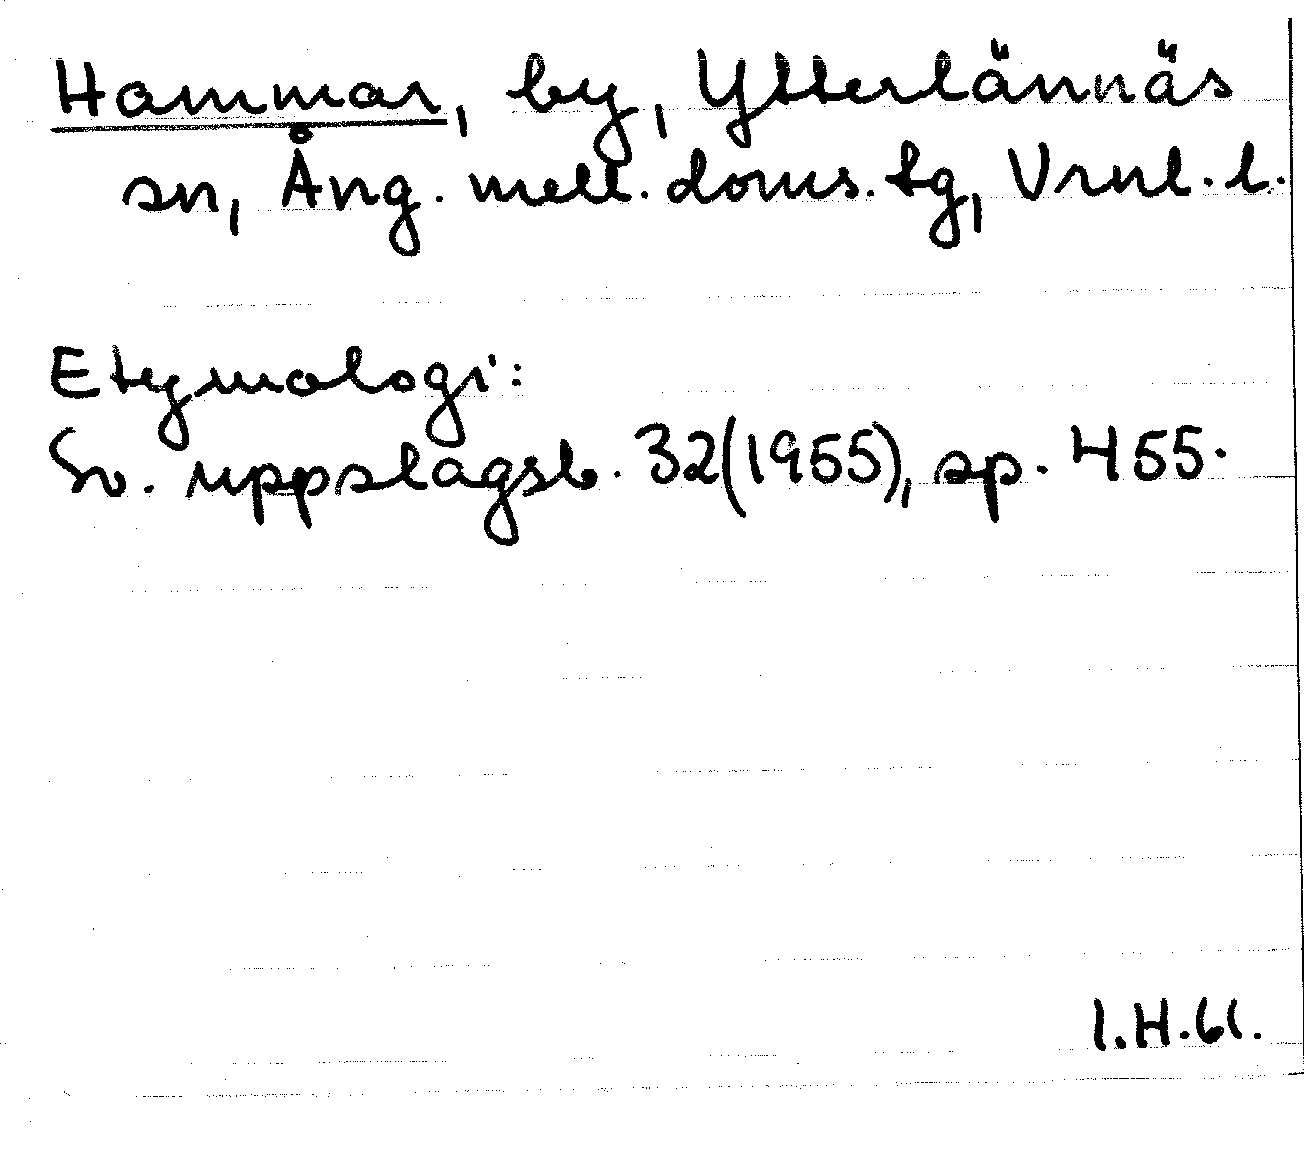 Hammar, by, Ytterlännäs
sn, Ång. mell. doms. tg, Vrnl. l.
Etymologi:
Sv. uppslagsb. 32(1955), sp. 455.
I.H.61.